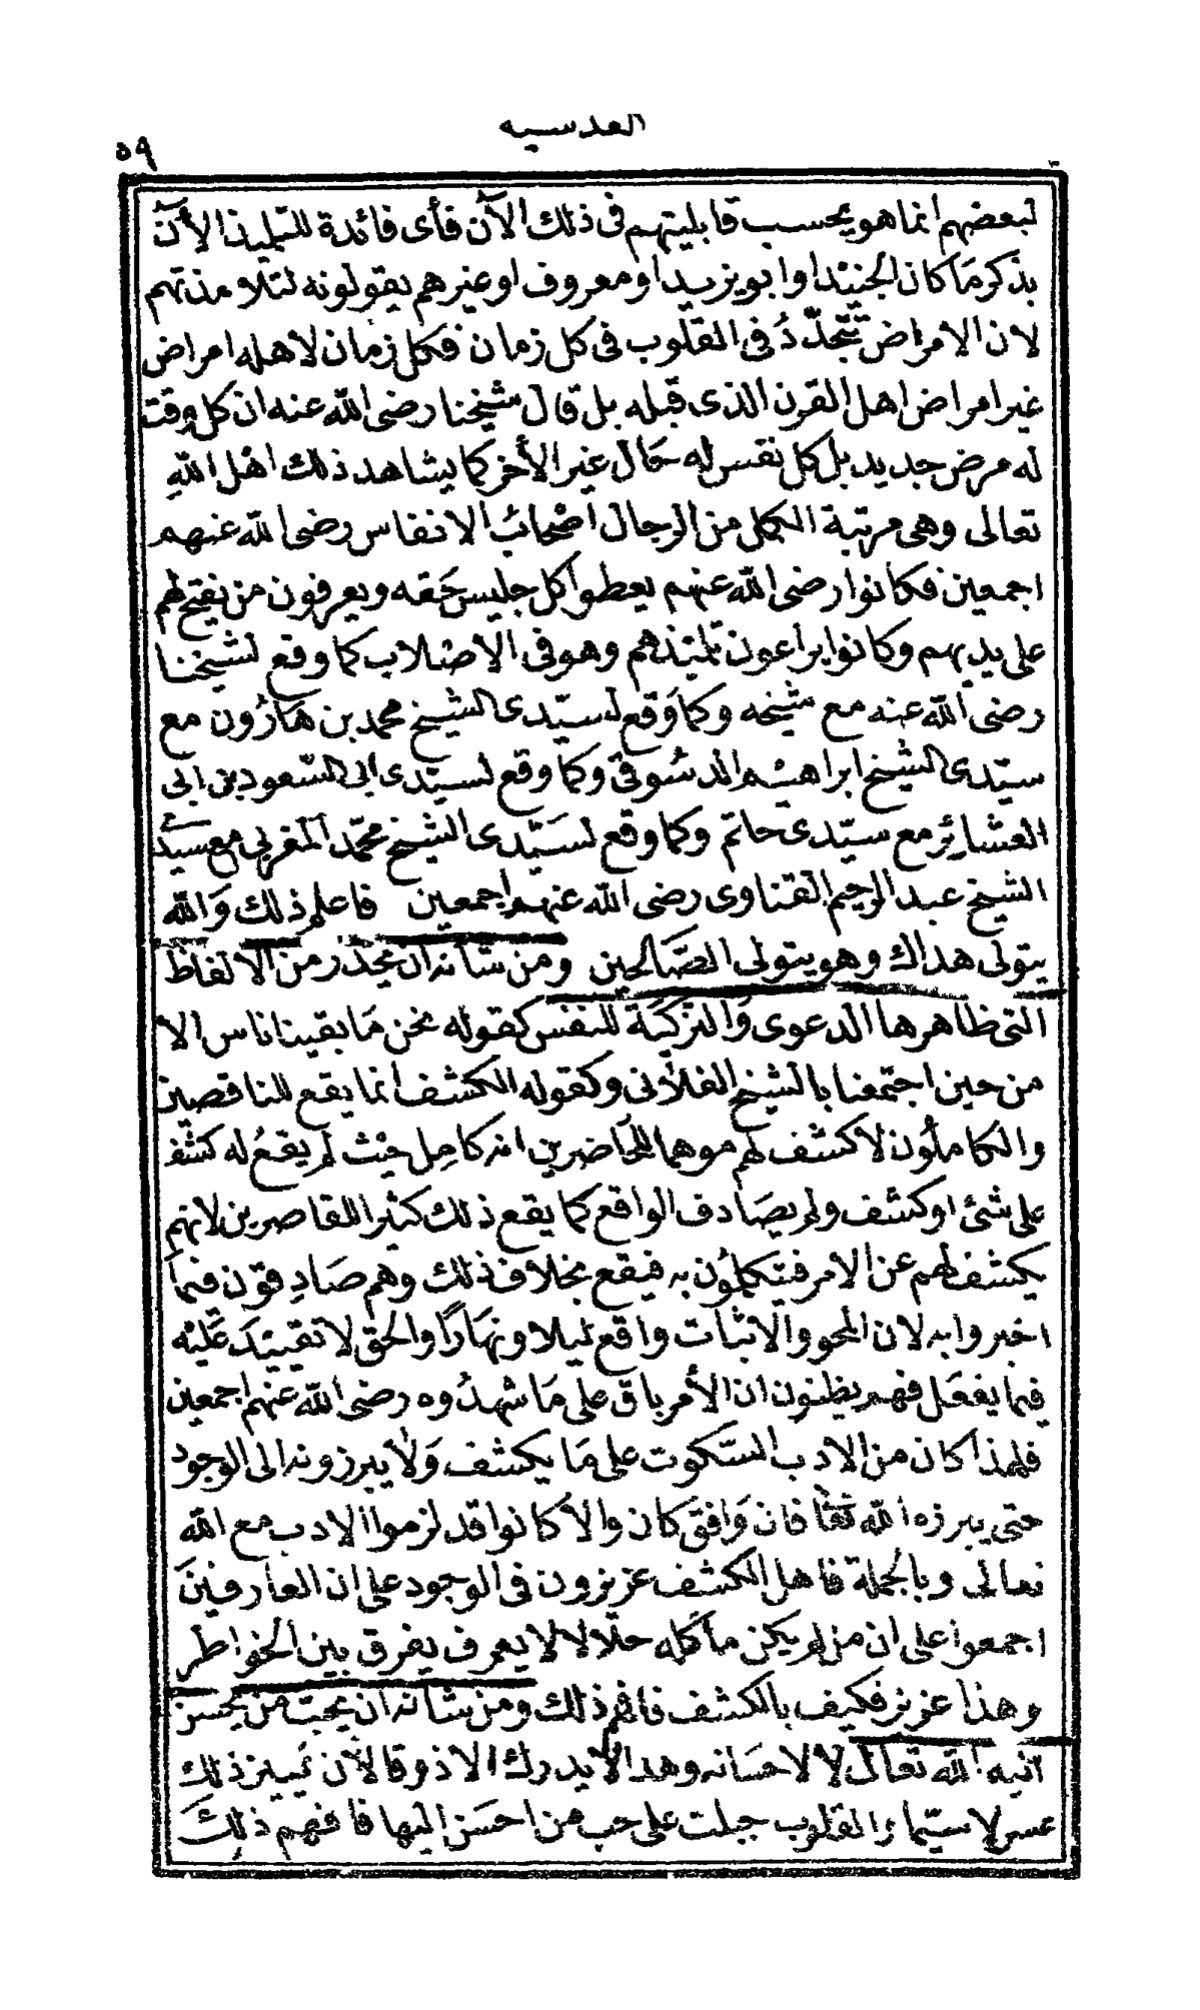 القدسيه
٥٩
لبعضهم انما هو بحسب قابليتهم فى ذلك الآن فأى فائدة للتلميذ الأن
بذكر ما كان الجنيد او ابو يزيد او معروف او غيرهم يقولونه لتلامذتهم
لان الامراض تتجدّد فى القلوب فى كل زمان فكل زمان لاهله امراض
غير امراض اهل القرن الذى قبله بل قال شيخنا رضى الله عنه ان كل وقت
له مرض جديد بل كل نفس له حال غير الأخر كما يشاهد ذلك اهل الله
تعالى وهى مرتبة الكمل من الرجال اصحاب الانفاس رضى الله عنهم
اجمعين فكانوا رضى الله عنهم يعطوا كل جليس حقه ويعرفون من يفتح لهم
على يديهم وكانوا يراعون تلميذهم وهو فى الاصلاب كما وقع لشيخنا
رضى الله عنه مع شيخه وكما وقع لسيّدى الشيخ محمد بن هارون مع
سيّدى الشيخ ابراهيم الدسوقى وكما وقع لسيّدى ابى السعود بن ابى
العشاير مع سيّدى حاتم وكما وقع لسيّدى الشيخ محمّد المغربى مع سيد
الشيخ عبد الرحيم القناوى رضى الله عنهم اجمعين فاعلم ذلك والله
يتولى هداك وهو يتولى الصّالحين ومن شأنه ان يحذر من الالفاظ
التى ظاهرها الدعوى والتزكية للنفس كقوله نحن ما بقينا ناس الا
من حين اجتمعنا بالشيخ الفلانى وكقوله الكشف انما يقع للناقصين
والكاملون لا كشف لهم موهما للحاضرين انه كامل حيث لم يقع له كشف
على شئ او كشف ولم يصادف الواقع كما يقع ذلك كثيرا للقاصرين لانهم
يكشف لهم عن الامر فيتكلمون به فيقع بخلاف ذلك وهم صادقون فيما
اخبروا به لان المحو والاثبات واقع ليلا ونهارًا والحق لا تقييد عليه
فيما يفعل فهم يظنون ان الأمر باق على ما شهدوه رضى الله عنهم اجمعين
فلهذا كان من الادب السّكوت على ما يكشف ولا يبرزونه الى الوجود
حتى يبرزه الله تعا فان وافق كان والا كانوا قد لزموا الادب مع الله
تعالى وبالجملة فاهل الكشف عزيزون فى الوجود على ان العارفين
اجمعوا على ان من لم يكن مأكله حلالا لا يعرف يفرق بين الخواطر
وهذا عزيز فكيف بالكشف فافهم ذلك ومن شأنه ان يحب من يحسن
اليه الله تعالى لا لاحسانه وهذا لا يدرك الا ذوقا لان تمييز ذلك
عسر لا سيّما والقلوب جبلت على حب من احسن اليها فافهم ذلك